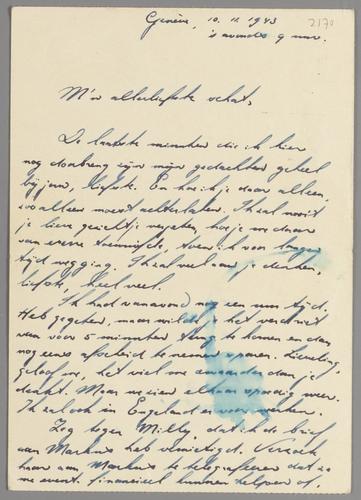 Genève, 10.12.1943
's avonds 9 uur.
2170
M'n allerliefste schat,
De laatste minuten die ik hier
nog doorbreng zijn mijn gedachten geheel
bij jou, liefste. En hoe ik je daar alleen,
zo alleen moest achterlaten. Ik zal nooit
je lieve gezichtje vergeten, hoe je me daar
van verre toewuifde, toen ik voor langen
tijd wegging. Ik zal veel aan je denken,
liefste, heel veel.
Ik had vanavond nog een uur tijd.
Heb gegeten, maar wilde je het verdriet
van voor 5 minuten terug te komen en dan
nog eens afscheid te nemen sparen. Lieveling,
geloof me, het viel me zwaarder dan je
denkt. Maar we zien elkaar spoedig weer.
Ik zal ook in Engeland er voor werken.
Zeg tegen Milly, dat ik de brief
aan Markus heb vernietigd. Verzoek
haar aan Markus te telegraferen dat ze
me event. financieel kunnen helpen of.